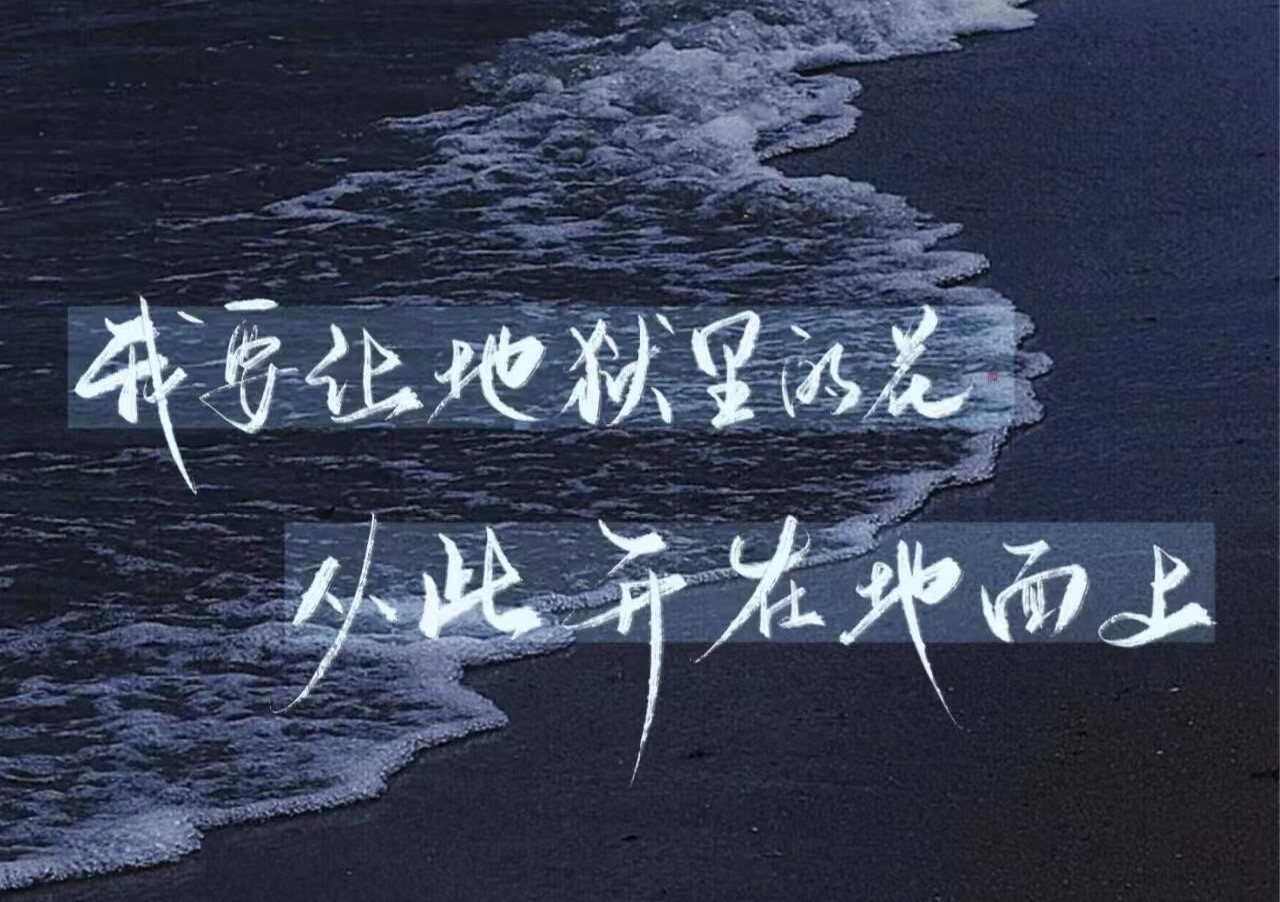 我要让地狱里的花
从此开在地面上